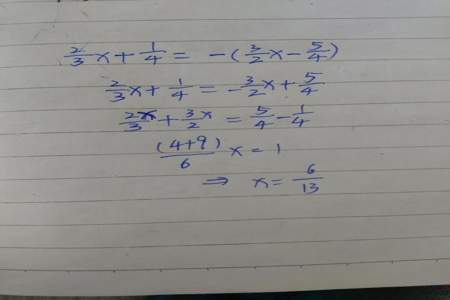 2/3 x + 1/4 = -(3/2 x - 5/4)
2/3 x + 1/4 = -3/2 x + 5/4
2x/3 + 3x/2 = 5/4 - 1/4
(4+9)/6 x = 1
⇒ x = 6/13